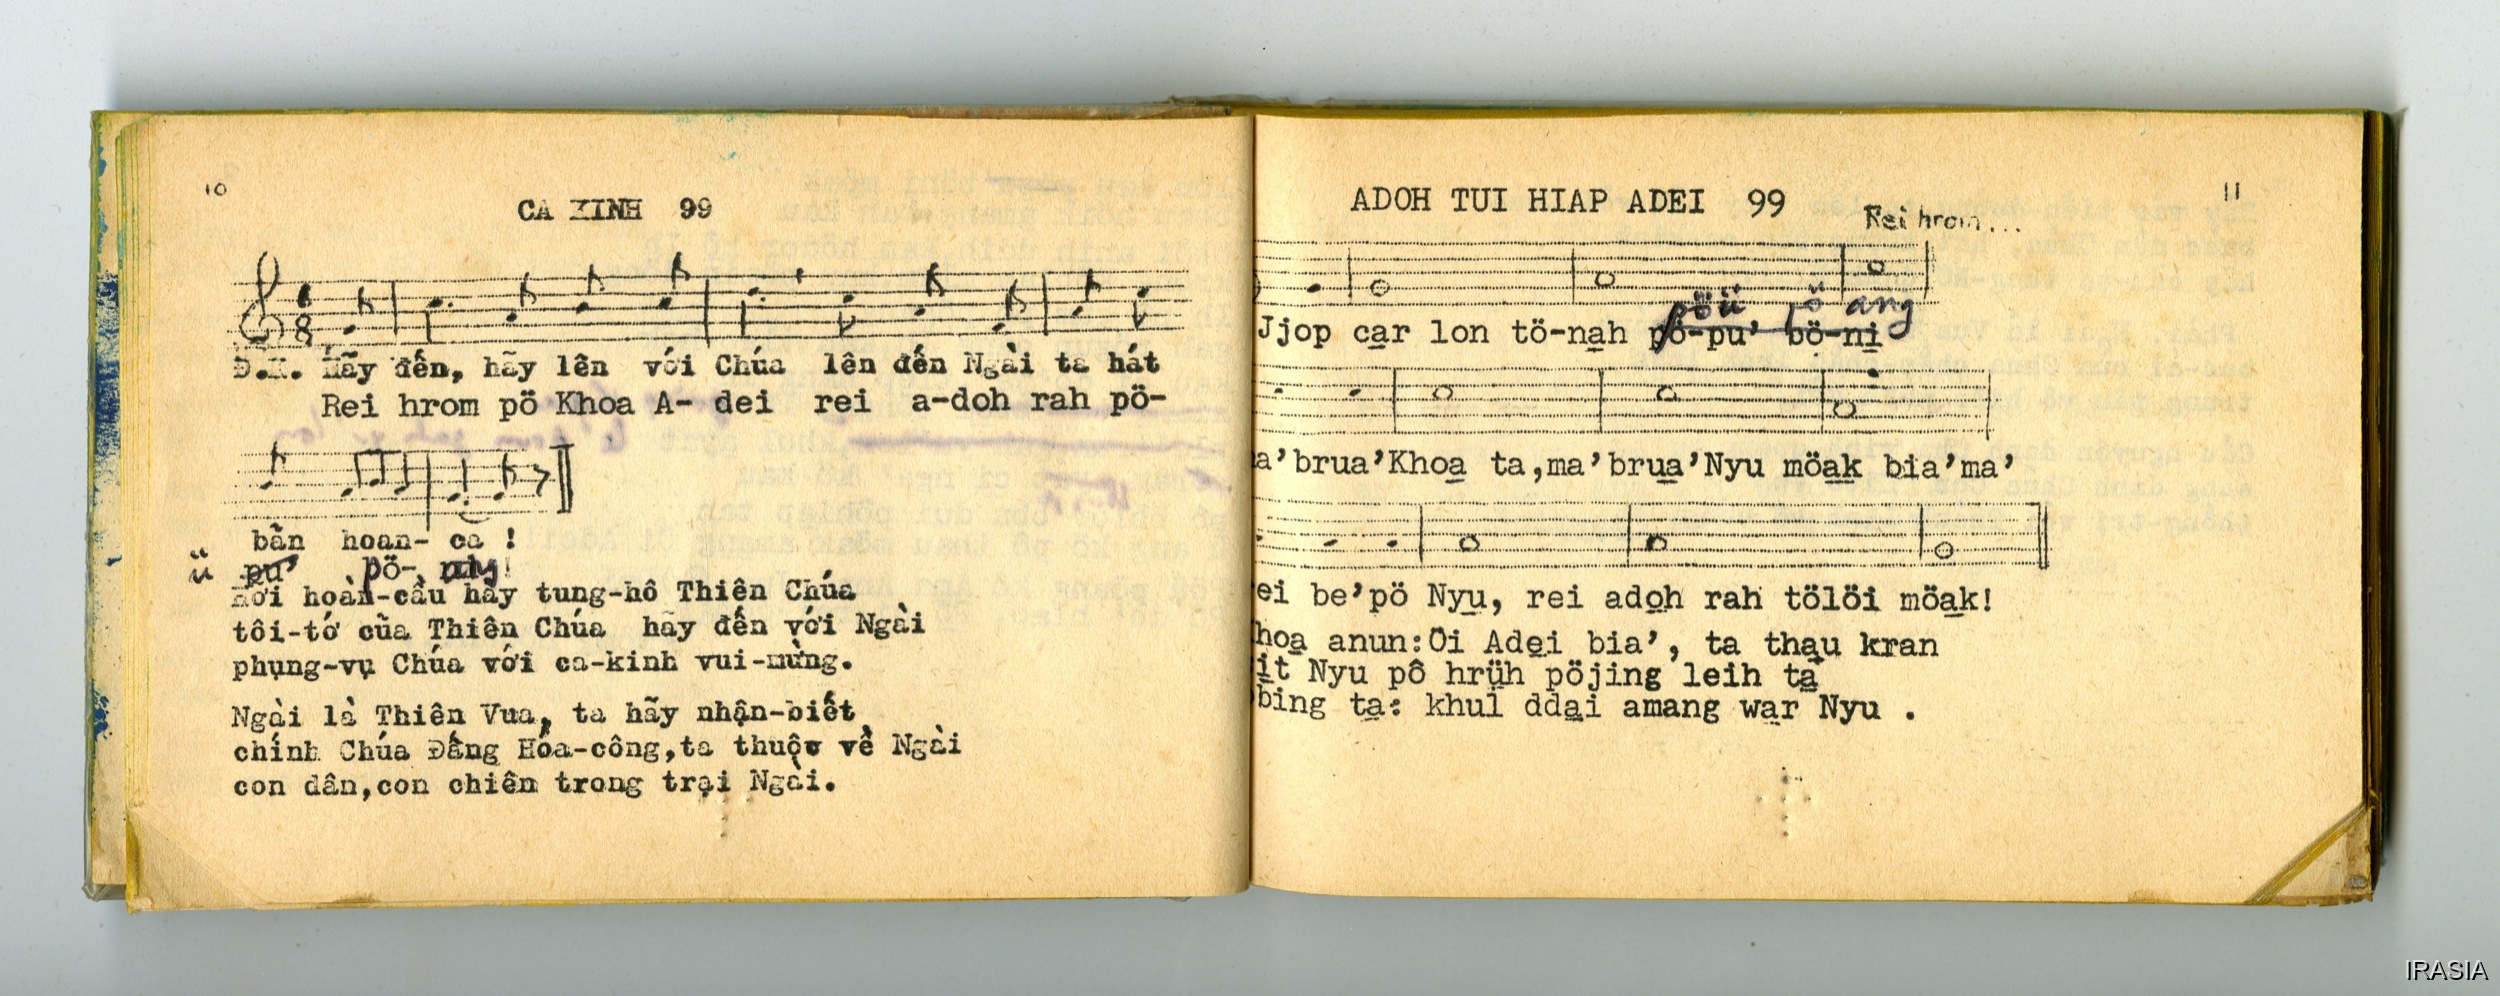 10
CA KINH 99
Đ.K. Hãy đến, hãy lên với Chúa lên đến Ngài ta hát
Rei hrom pö Khoa A- dei rei a-doh rah pö-
bản hoan- ca !
ü pu' pö-
Hỡi hoàn-cầu hãy tung-hô Thiên Chúa
tôi-tớ của Thiên Chúa hãy đến với Ngài
phụng-vụ Chúa với ca-kinh vui-mừng.
Ngài là Thiên Vua, ta hãy nhận-biết
chính Chúa Đấng Hóa-công,ta thuộc về Ngài
con dân,con chiên trong trại Ngài.
11
ADOH TUI HIAP ADEI 99
Rei hrom...
pöü pö ang
Jjop ca̱r lon tö-na̱h pö-pu' bö-ni̱
a'brua'Khoa̱ ta,ma'brua̱'Nyu möa̱ḵ bia'ma'
ei be'pö Nyu̱, rei ado̱h rah tölöi möa̱k!
hoa̱ anun:Öi Ade̱i bia', ta tha̱u kran
i̱t Nyu pô hrü̱h pöjing leih ta̱
bing ta̱: khul dda̱i amang wa̱r Nyu .
IRASIA